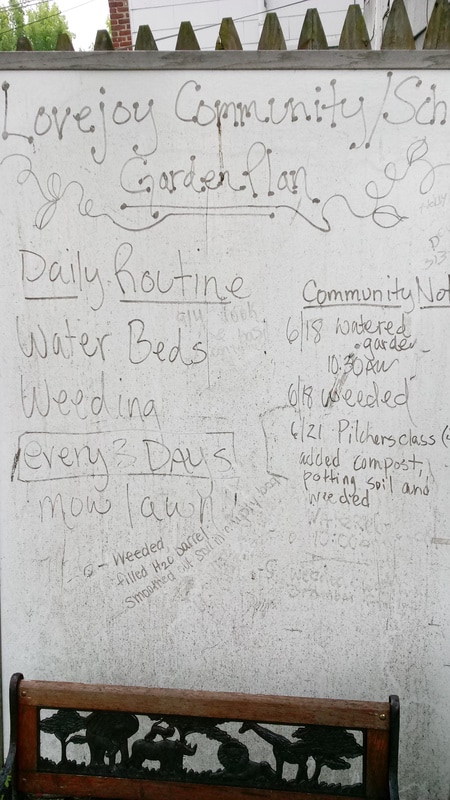 Lovejoy Community/Sch
Garden Plan
Daily Routine
Water Beds
Weeding
every 3 Days
mow lawn
Weeded
filled H2O barrel
smoothed out soil in empty bed
Community Not
6/18 watered
garden
10:30AM
6/18 weeded
6/21 Pilchers class
added compost,
potting soil and
weeded